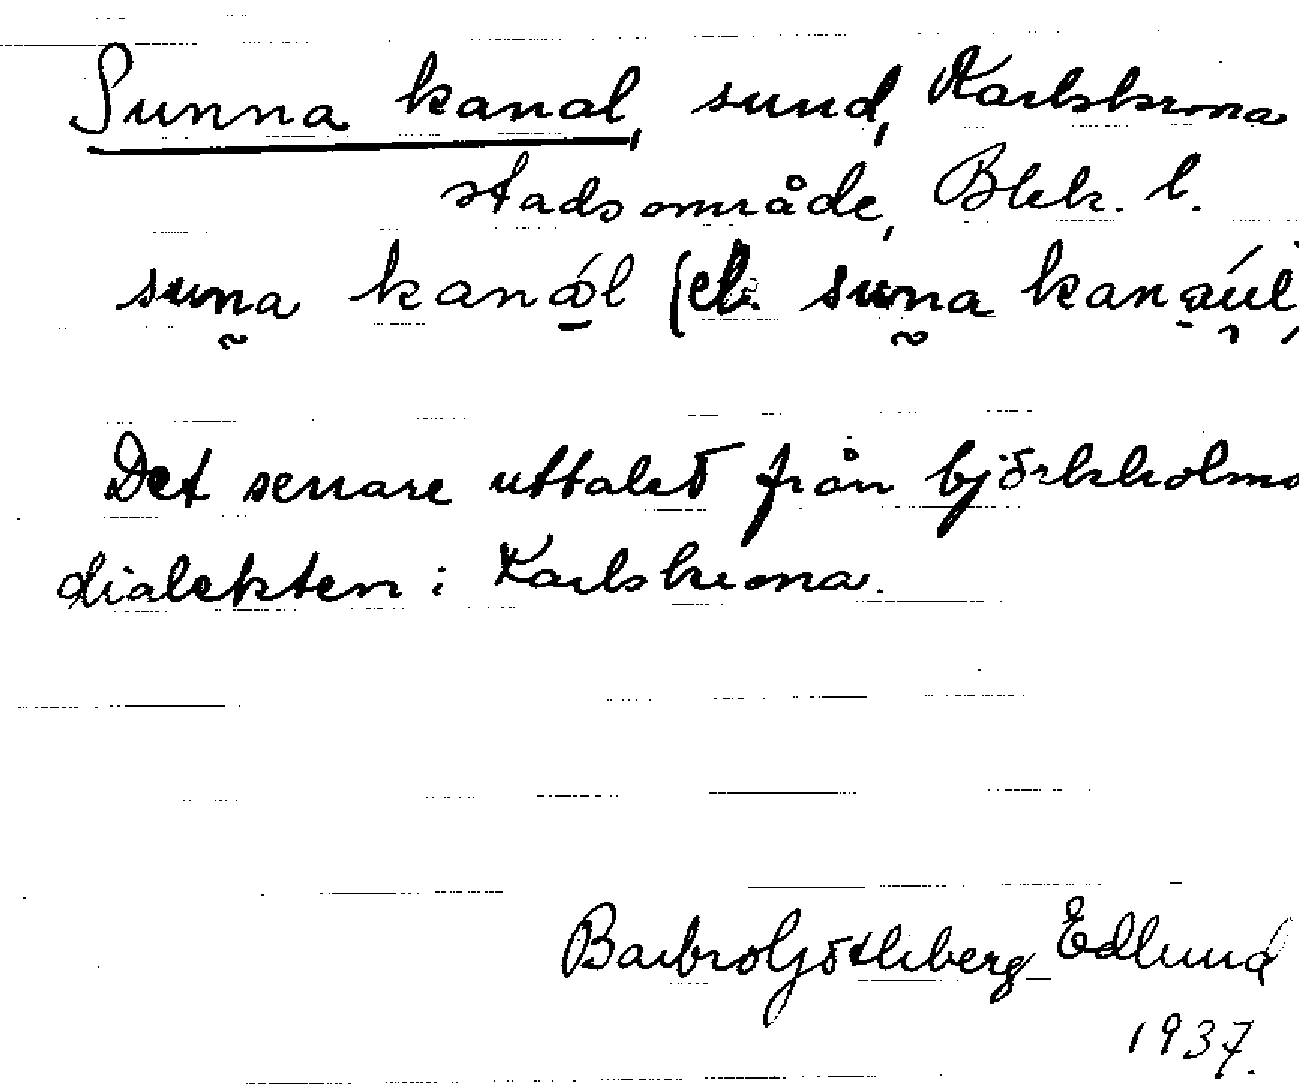 Sunna kanal, sund, Karlskrona
stadsområde, Blek. l.
suna kanál (el. suna kanaúl,
Det senare uttalet från björkholms
dialekten i Karlskrona.
Barbro Götleberg-Edlund
1937.